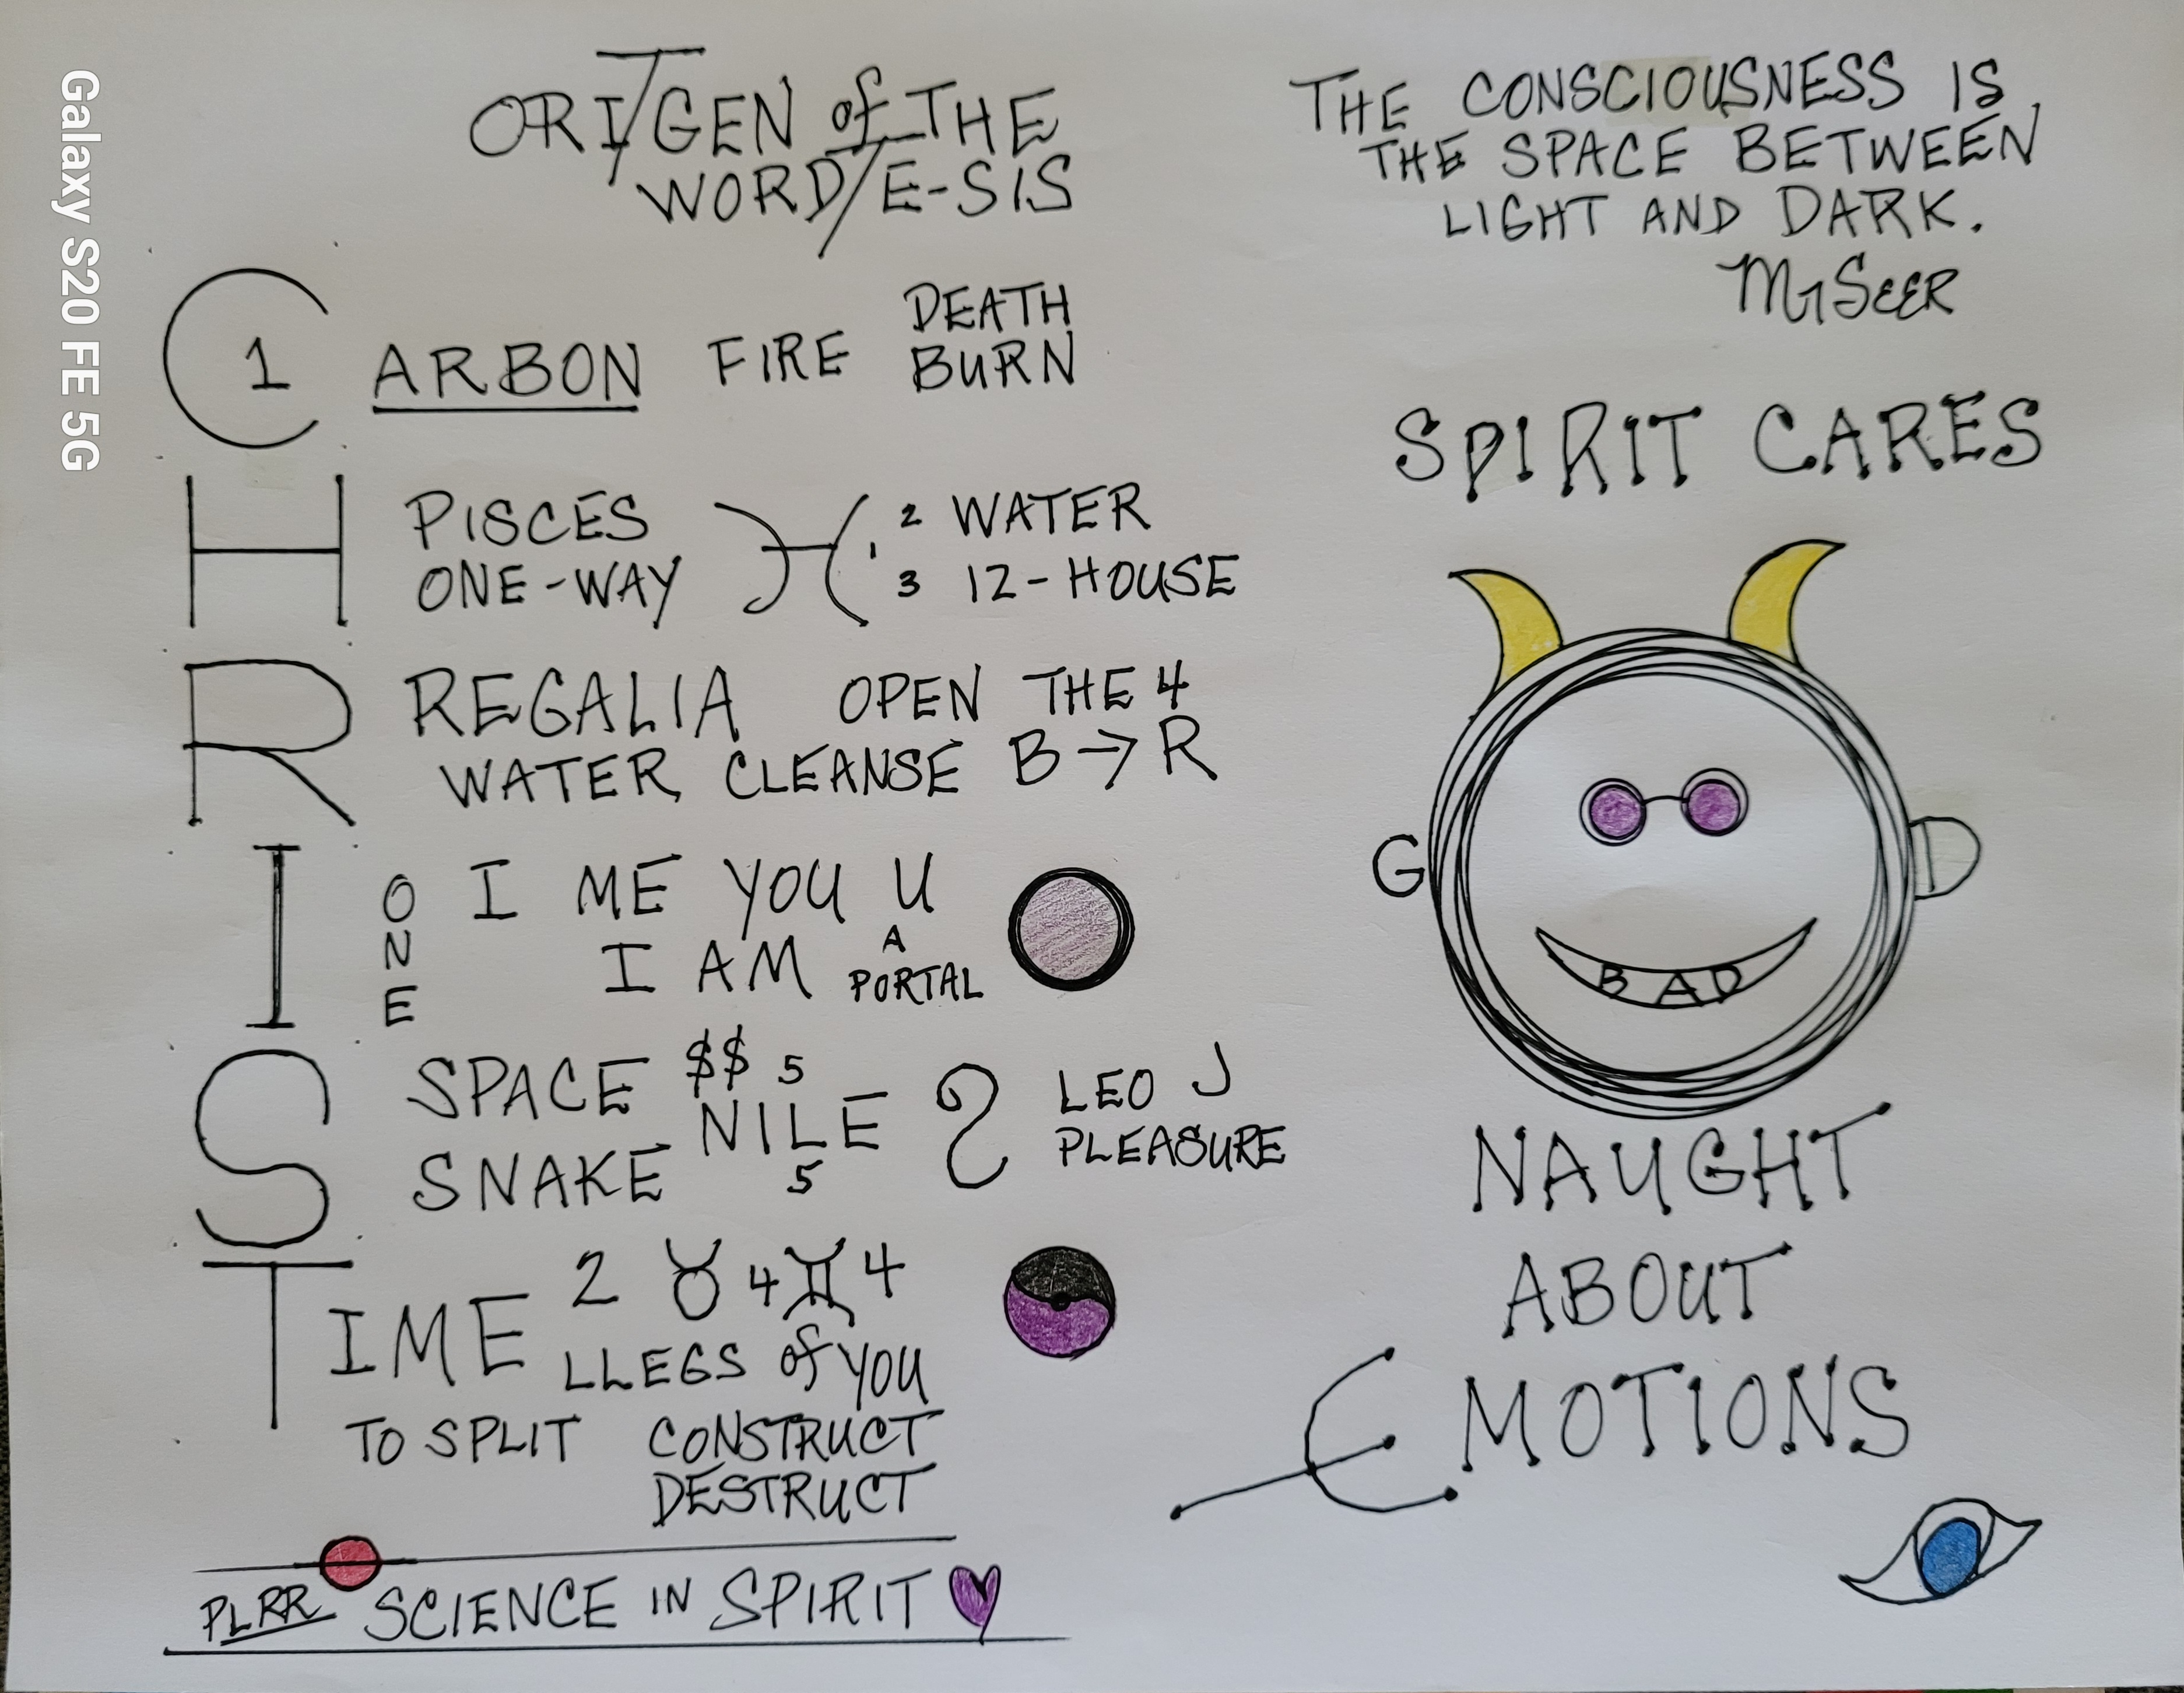 ORI/GEN of THE
WORD/E-SIS
C 1 ARBON FIRE DEATH
BURN
H PISCES ♓ 2 WATER
1
ONE-WAY 3 12-HOUSE
R REGALIA OPEN THE 4
WATER CLEANSE B → R
I ONE I ME YOU U
I AM A PORTAL
S SPACE $$ 5 LEO J
NILE
SNAKE 5 PLEASURE
TIME 2 ♉ 4 ♊ 4
LLEGS of YOU
TO SPLIT CONSTRUCT
DESTRUCT
PLRR SCIENCE IN SPIRIT
THE CONSCIOUSNESS IS
THE SPACE BETWEEN
LIGHT AND DARK.
SPIRIT CARES
G D
BAD
NAUGHT
ABOUT
EMOTIONS
Galaxy S20 FE 5G